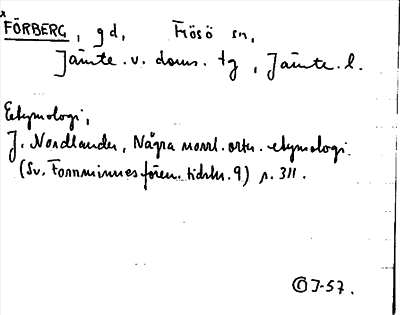 FÖRBERG, gd, Frösö sn,
Jämte. v. doms. tg, Jämte. l.
Etymologi,
J. Nordlander, Några norrl. ortn. etymologi.
(Sv. Fornminnesfören. tidskr. 9) s. 311.
© J-57.